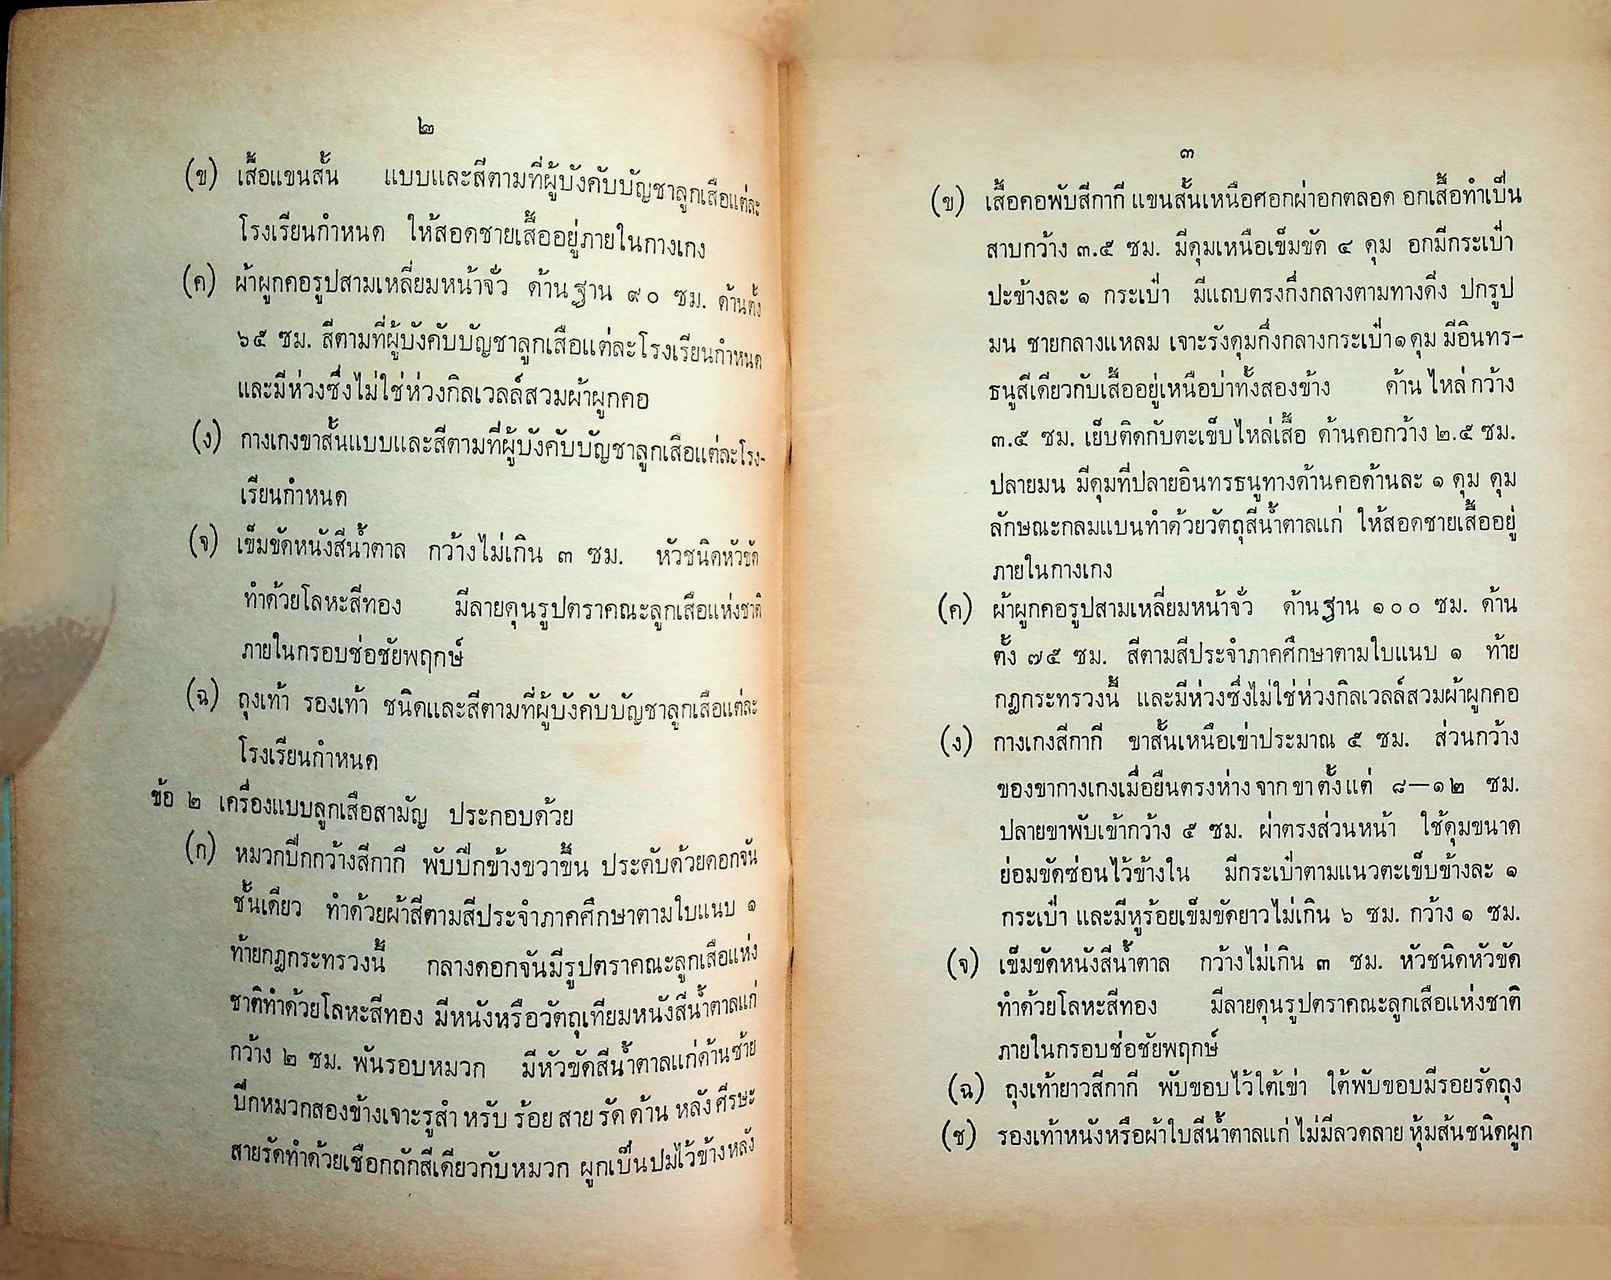 ๒
(ข) เสื้อแขนสั้น แบบและสีตามที่ผู้บังคับบัญชาลูกเสือแต่ละ
โรงเรียนกำหนด ให้สอดชายเสื้ออยู่ภายในกางเกง
(ค) ผ้าผูกคอรูปสามเหลี่ยมหน้าจั่ว ด้านฐาน ๙๐ ซม. ด้านตั้ง
๖๕ ซม. สีตามที่ผู้บังคับบัญชาลูกเสือแต่ละโรงเรียนกำหนด
และมีห่วงซึ่งไม่ใช่ห่วงกิลเวลล์สวมผ้าผูกคอ
(ง) กางเกงขาสั้นแบบและสีตามที่ผู้บังคับบัญชาลูกเสือแต่ละโรง-
เรียนกำหนด
(จ) เข็มขัดหนังสีน้ำตาล กว้างไม่เกิน ๓ ซม. หัวชนิดหัวขัด
ทำด้วยโลหะสีทอง มีลายดุนรูปตราคณะลูกเสือแห่งชาติ
ภายในกรอบช่อชัยพฤกษ์
(ฉ) ถุงเท้า รองเท้า ชนิดและสีตามที่ผู้บังคับบัญชาลูกเสือแต่ละ
โรงเรียนกำหนด
ข้อ ๒ เครื่องแบบลูกเสือสามัญ ประกอบด้วย
(ก) หมวกปีกกว้างสีกากี พับปีกข้างขวาขึ้น ประดับด้วยดอกจัน
ชั้นเดียว ทำด้วยผ้าสีตามสีประจำภาคศึกษาตามใบแนบ ๑
ท้ายกฎกระทรวงนี้ กลางดอกจันมีรูปตราคณะลูกเสือแห่ง
ชาติทำด้วยโลหะสีทอง มีหนังหรือวัตถุเทียมหนังสีน้ำตาลแก่
กว้าง ๒ ซม. พันรอบหมวก มีหัวขัดสีน้ำตาลแก่ด้านซ้าย
ปีกหมวกสองข้างเจาะรูสำหรับร้อยสายรัดด้านหลังศีรษะ
สายรัดทำด้วยเชือกถักสีเดียวกับหมวก ผูกเป็นปมไว้ข้างหลัง
๓
(ข) เสื้อคอพับสีกากี แขนสั้นเหนือศอกผ่าอกตลอด อกเสื้อทำเป็น
สาบกว้าง ๓.๕ ซม. มีดุมเหนือเข็มขัด ๔ ดุม อกมีกระเป๋า
ปะข้างละ ๑ กระเป๋า มีแถบตรงกึ่งกลางตามทางดิ่ง ปกรูป
มน ชายกลางแหลม เจาะรังดุมกึ่งกลางกระเป๋า ๑ ดุม มีอินทร-
ธนูสีเดียวกับเสื้ออยู่เหนือบ่าทั้งสองข้าง ด้านไหล่กว้าง
๓.๕ ซม. เย็บติดกับตะเข็บไหล่เสื้อ ด้านคอกว้าง ๒.๕ ซม.
ปลายมน มีดุมที่ปลายอินทรธนูทางด้านคอด้านละ ๑ ดุม ดุม
ลักษณะกลมแบนทำด้วยวัตถุสีน้ำตาลแก่ ให้สอดชายเสื้ออยู่
ภายในกางเกง
(ค) ผ้าผูกคอรูปสามเหลี่ยมหน้าจั่ว ด้านฐาน ๑๐๐ ซม. ด้าน
ตั้ง ๗๕ ซม. สีตามสีประจำภาคศึกษาตามใบแนบ ๑ ท้าย
กฎกระทรวงนี้ และมีห่วงซึ่งไม่ใช่ห่วงกิลเวลล์สวมผ้าผูกคอ
(ง) กางเกงสีกากี ขาสั้นเหนือเข่าประมาณ ๕ ซม. ส่วนกว้าง
ของขากางเกงเมื่อยืนตรงห่างจากขาตั้งแต่ ๘—๑๒ ซม.
ปลายขาพับเข้ากว้าง ๕ ซม. ผ่าตรงส่วนหน้า ใช้ดุมขนาด
ย่อมขัดซ่อนไว้ข้างใน มีกระเป๋าตามแนวตะเข็บข้างละ ๑
กระเป๋า และมีหูร้อยเข็มขัดยาวไม่เกิน ๖ ซม. กว้าง ๑ ซม.
(จ) เข็มขัดหนังสีน้ำตาล กว้างไม่เกิน ๓ ซม. หัวชนิดหัวขัด
ทำด้วยโลหะสีทอง มีลายดุนรูปตราคณะลูกเสือแห่งชาติ
ภายในกรอบช่อชัยพฤกษ์
(ฉ) ถุงเท้ายาวสีกากี พับขอบไว้ใต้เข่า ใต้พับขอบมีรอยรัดถุง
(ช) รองเท้าหนังหรือผ้าใบสีน้ำตาลแก่ ไม่มีลวดลาย หุ้มส้นชนิดผูก